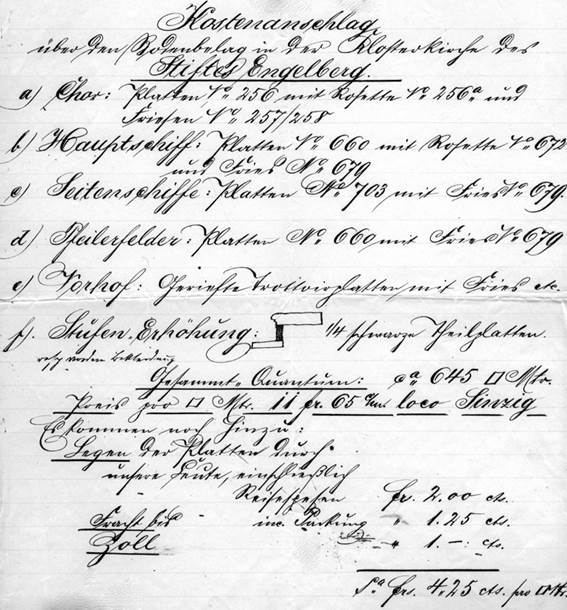 Kostenanschlag
über den Bodenbelag in der Klosterkirche des
Stiftes Engelberg.
a) Chor: Platten No 256 mit Rosette No 256a und
Friesen No 257/258
b) Hauptschiff: Platten No 660 mit Rosette No 672
und Fries No 679
c) Seitenschiffe: Platten No 703 mit Fries No 679.
d) Pfeilerfelder: Platten No 660 mit Fries No 679
e) Vorhof: Geriefte Trottoirplatten mit Fries etc.
f). Stufen Erhöhung: 1/4 schwarze Theilplatten.
Gesammt-Quantum: ca 645 □ Mtr.
Preis pro □ Mtr. 11 fr. 65 cent loco Sinzig
Es kommen noch hinzu:
Legen der Platten durch
unsere Leute, einschließlich
Reisespesen fr. 2.00 cts.
Fracht bis inc. Packung " 1.25 cts.
Zoll " 1.-: cts.
Sa frs. 4.25 cts. pro □ Mtr.